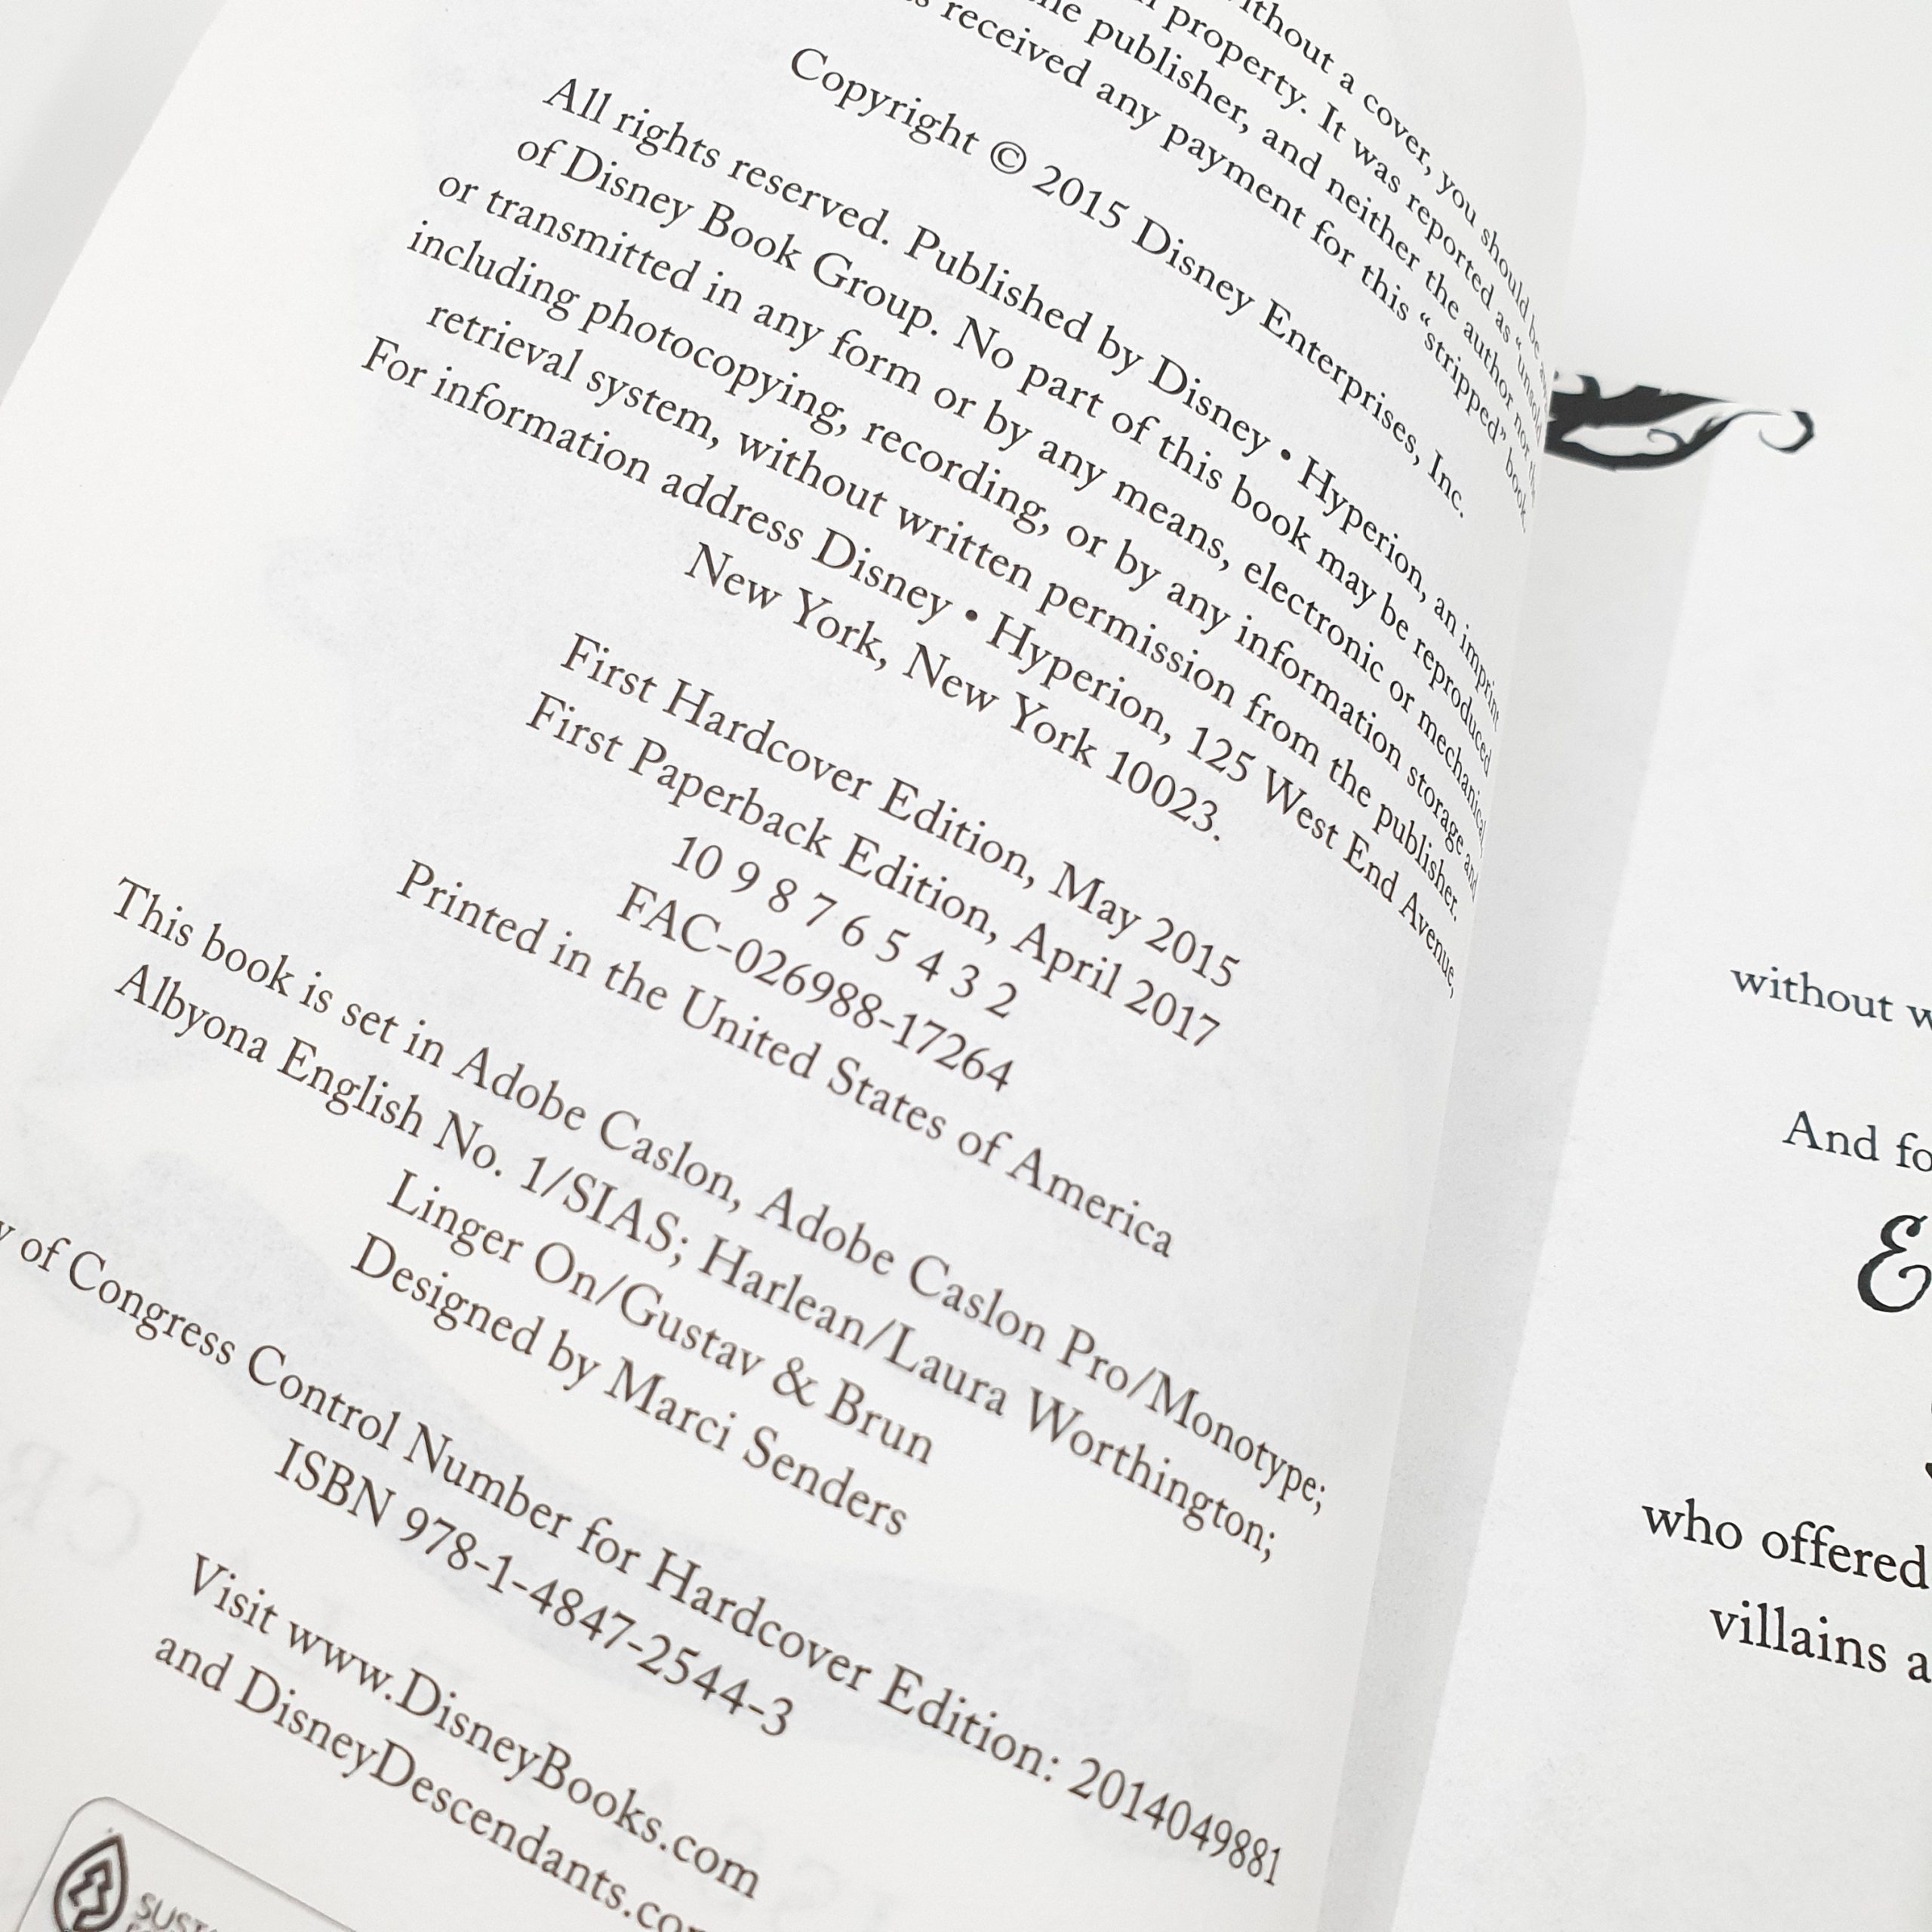 without a cover, you should be
property. It was reported as “unsold
the publisher, and neither the author nor the
received any payment for this “stripped” book.
Copyright © 2015 Disney Enterprises, Inc.
All rights reserved. Published by Disney • Hyperion, an imprint
of Disney Book Group. No part of this book may be reproduced
or transmitted in any form or by any means, electronic or mechanical,
including photocopying, recording, or by any information storage and
retrieval system, without written permission from the publisher.
For information address Disney • Hyperion, 125 West End Avenue,
New York, New York 10023.
First Hardcover Edition, May 2015
First Paperback Edition, April 2017
10 9 8 7 6 5 4 3 2
FAC-026988-17264
Printed in the United States of America
This book is set in Adobe Caslon, Adobe Caslon Pro/Monotype;
Albyona English No. 1/SIAS; Harlean/Laura Worthington;
Linger On/Gustav & Brun
Designed by Marci Senders
of Congress Control Number for Hardcover Edition: 2014049881
ISBN 978-1-4847-2544-3
Visit www.DisneyBooks.com
and DisneyDescendants.co
SUST
without w
And fo
E
who offered
villains a